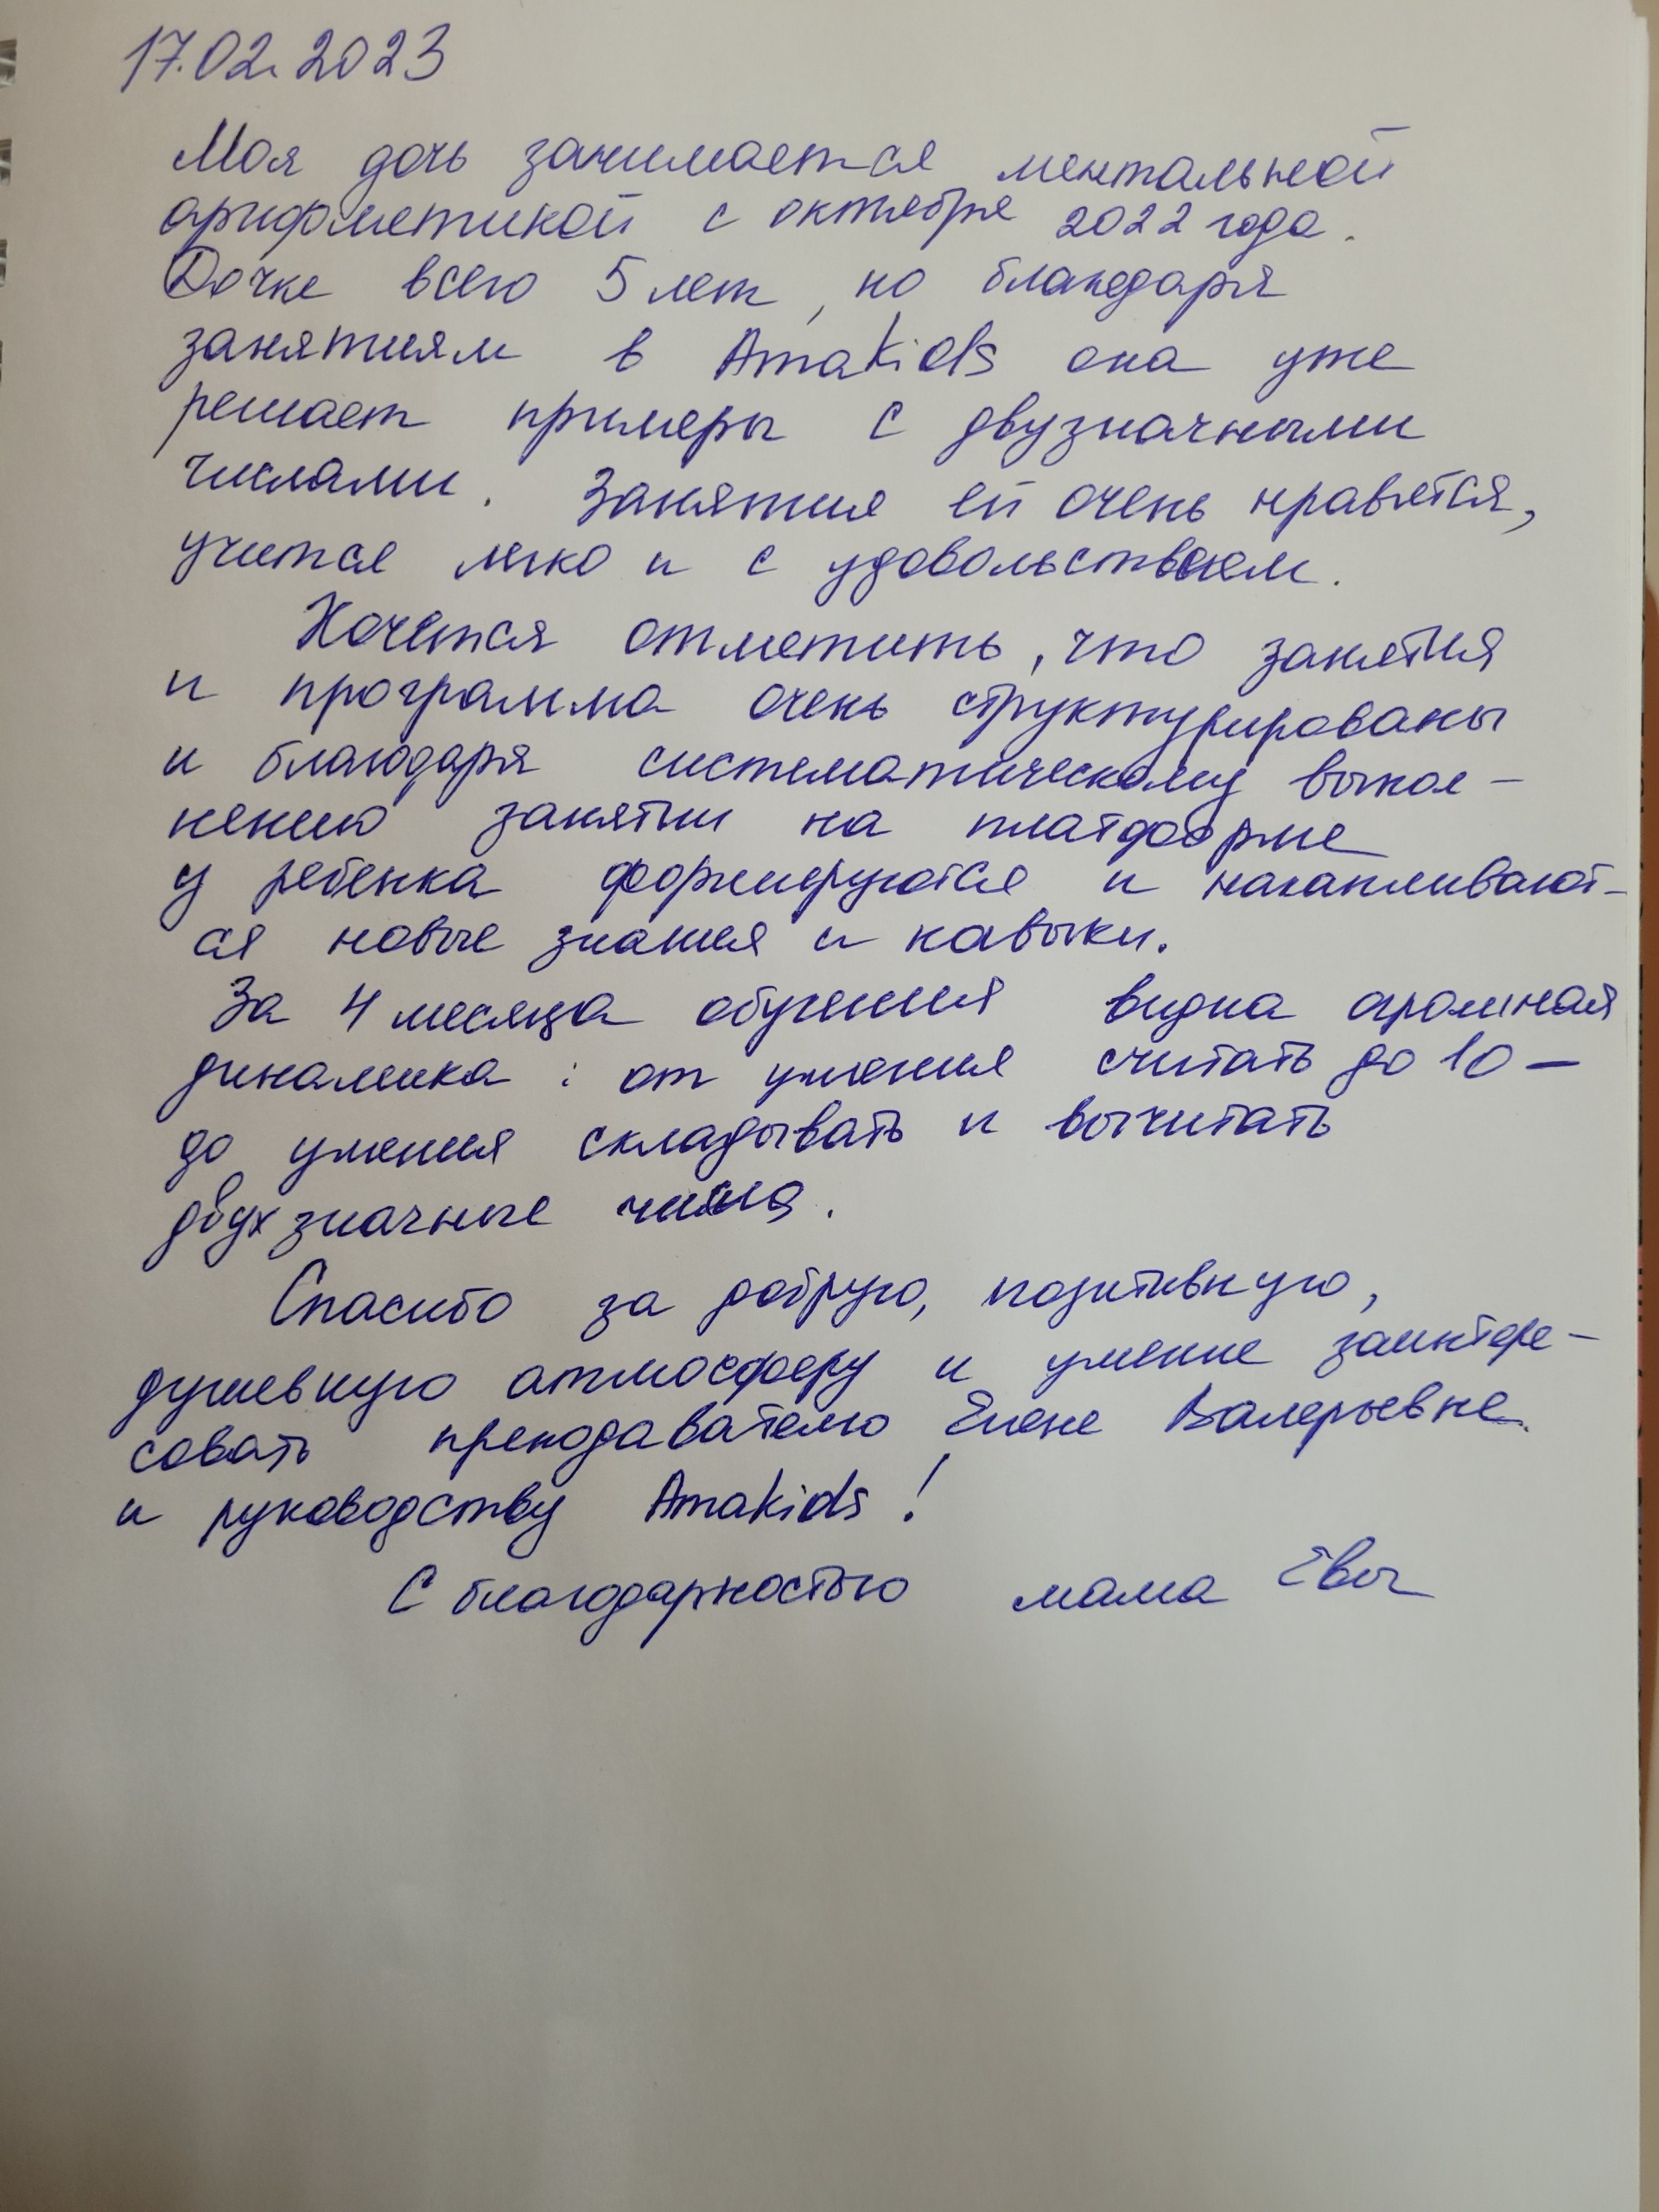 17.02.2023
Моя дочь занимается ментальной
арифметикой с октября 2022 года.
Дочке всего 5 лет, но благодаря
занятиям в AmaKids она уже
решает примеры с двузначными
числами. Занятия ей очень нравятся,
учится легко и с удовольствием.
Хочется отметить, что занятия
и программа очень структурированы
и благодаря систематическому выпол-
нению занятий на платформе
у ребенка формируются и накапливают-
ся новые знания и навыки.
За 4 месяца обучения видна огромная
динамика: от умения считать до 10 –
до умения складывать и вычитать
двухзначные числа.
Спасибо за добрую, позитивную,
душевную атмосферу и умение заинтере-
совать преподавателю Елене Валерьевне
и руководству Amakids!
С благодарностью мама Евы